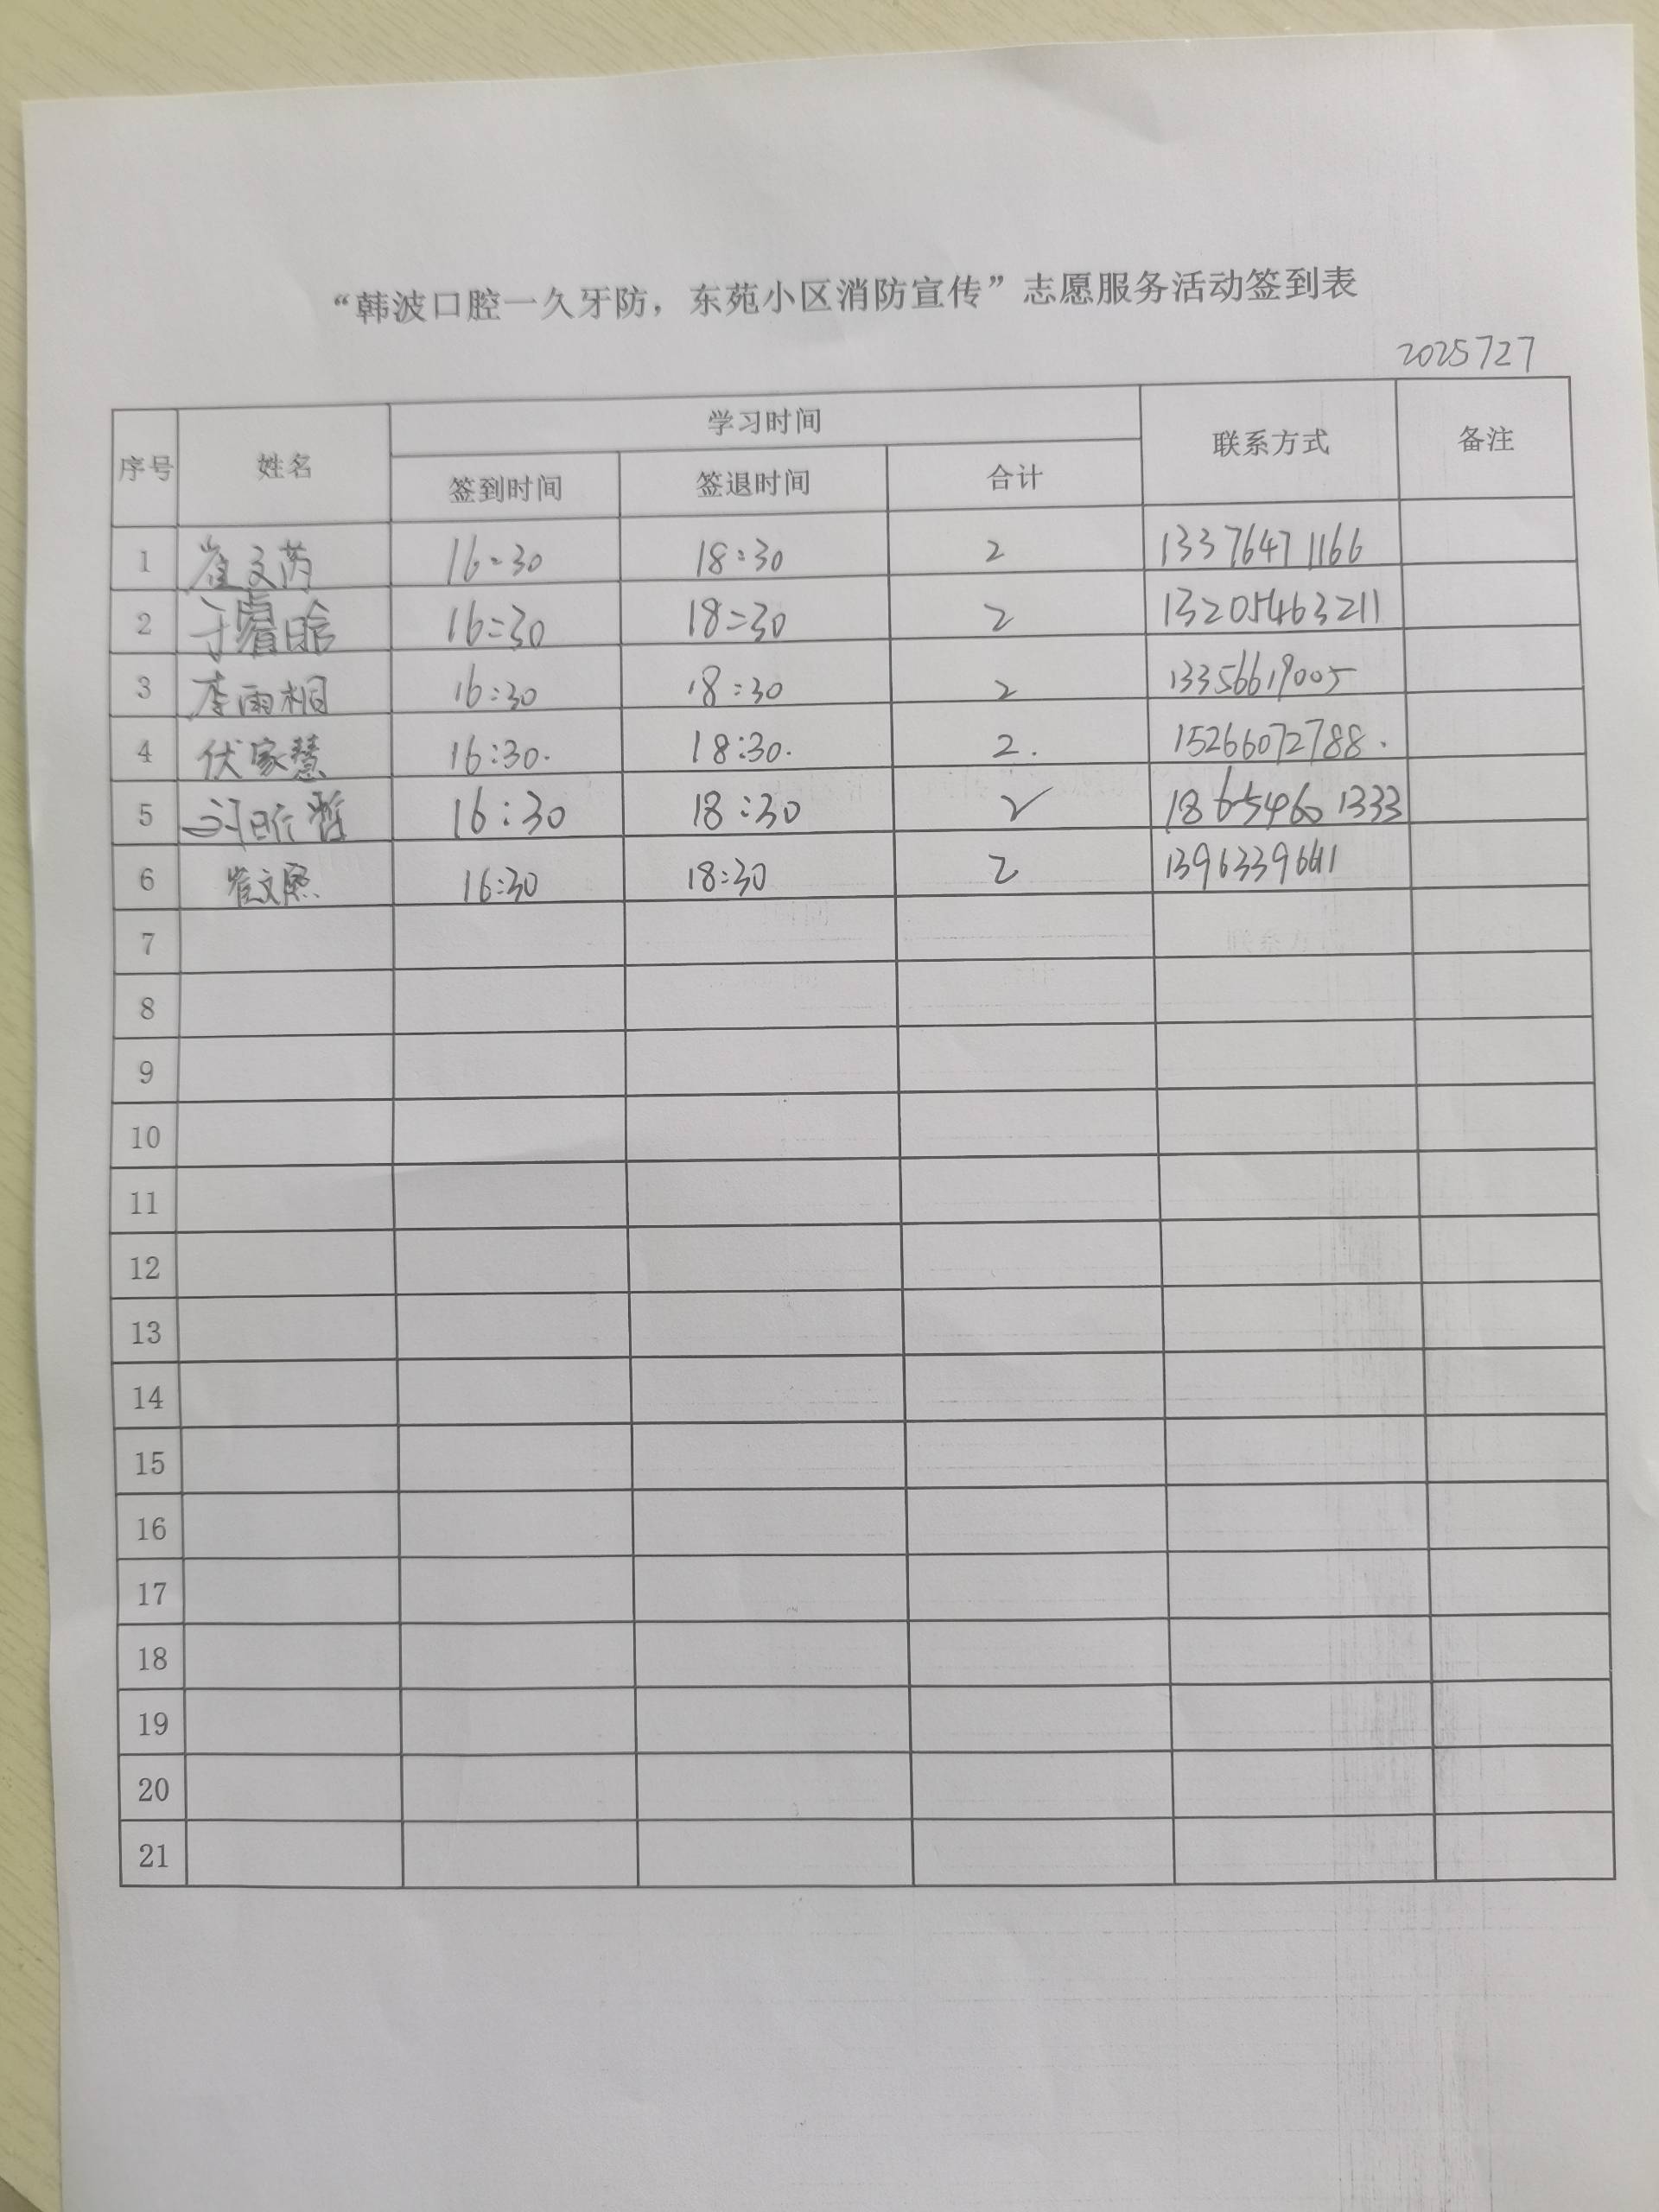 “韩波口腔一久牙防，东苑小区消防宣传”志愿服务活动签到表
2025727
序号 姓名 学习时间 联系方式 备注
签到时间 签退时间 合计
1 崔文芮 16:30 18:30 2 13376471166
2 于睿晗 16:30 18:30 2 13205463211
3 李雨桐 16:30 18:30 2 13356619005
4 伏家慧 16:30. 18:30. 2. 15266072788.
5 16:30 18:30 2 18654601333
6 崔文熙 16:30 18:30 2
7
8
9
10
11
12
13
14
15
16
17
18
19
20
21